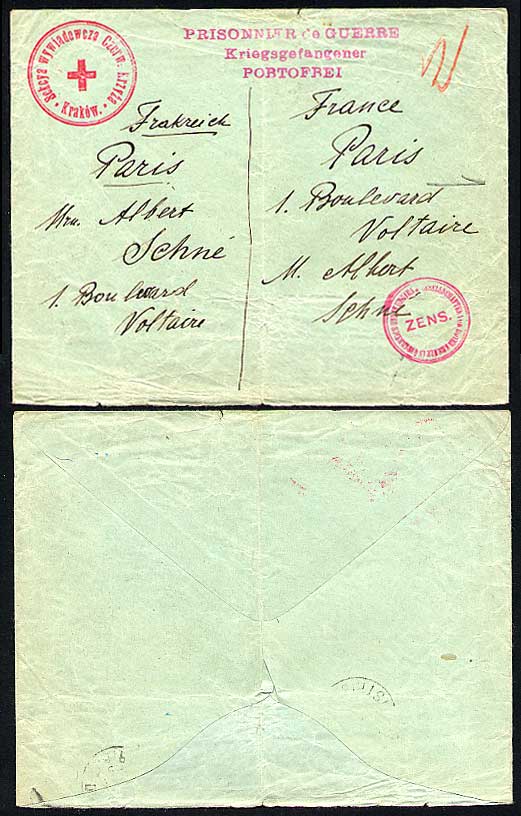 Sekcya wywiadowcza Czerw. Krzyża
· Kraków. ·
PRISONNIER de GUERRE
Kriegsgefangener
PORTOFREI
Frakreich
Paris
Albert
Schné
1. Boulevard
Voltaire
France
Paris
1. Boulevard
Voltaire
M. Albert
Schné
ZENS.